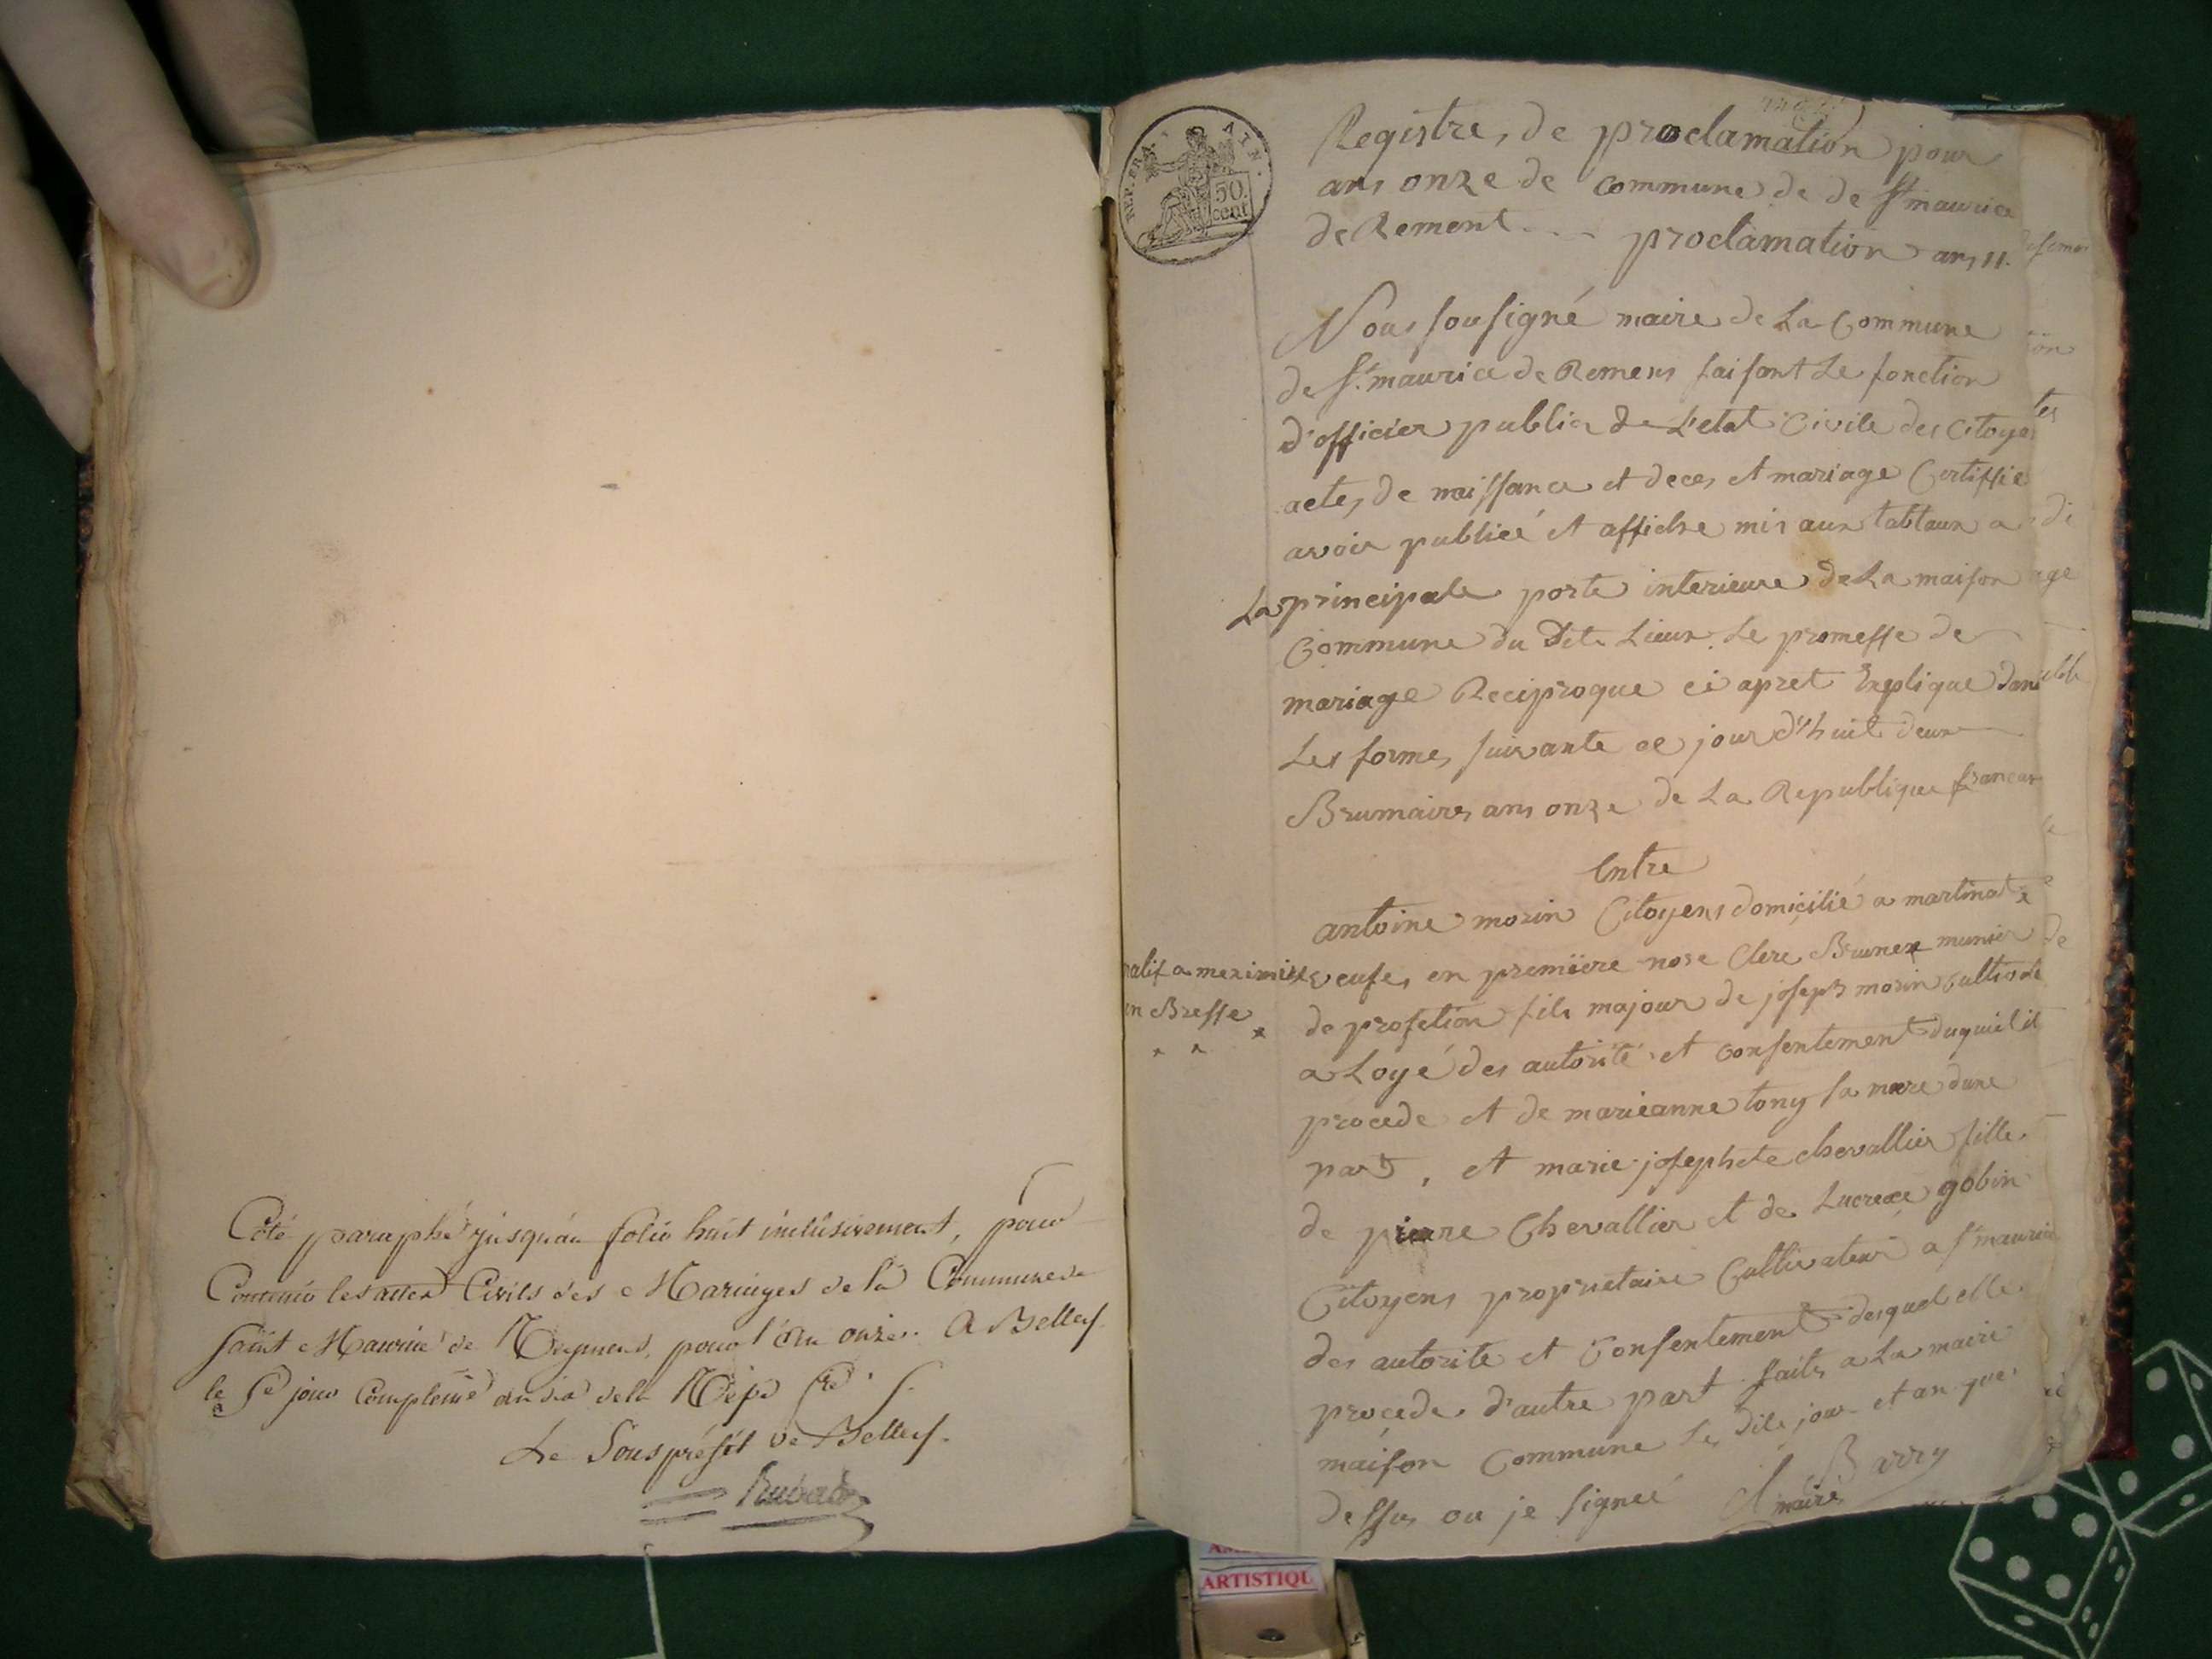 Coté paraphé jusqu'au folio huit inclusivement, pour
Contenir les actes Civils des Mariages de la Commune de
Saint Maurice de Reymens, pour l'an onze. A Belley
le 5e jour Complemre an dix de la Rep. fre.
Le Sous préfet de Belley.
REP. FRA.
50.
cent
Registre, de proclamation pour
ans onze de commune de de St maurice
de Rement ... proclamation ans 11.
Nous sousigné maire de La Commune
de St. maurice de Remens faisant Le fonction
d'officier public de L'etat Civile des Citoyes
actes, de naissance et deces et mariage Certiffie
avoir publiéé et affiche mis aux tabtaux a
La principale porte interieure de La maison
Commune du Dite Lieux Le promesse de
mariage Reciproque ci apret Explique dans
Les formes suivante ce jour d'huit deux
Brumaires ans onze de La Republique francas
Entre
antoine morin Citoyens domicilié a martinat
natif a meximiex
en Bresse
veufe, en premiere nose Clere Brunet munier
de profetion fils majour de joseph morin cultivate
a Loyé des autorité et consentement duquel il
procede et de marieanne tony sa mere dune
part, et marie josephete chevallier fille
de pierre Chevallier et de Lucrece gobin
Citoyens proprietaire Cultivateur a St maurice
des autorite et Consentement desquel elle
procede d'autre part faits a La mairie
maison Commune Les Dite jour et an que
dessus ou je signéé
Barry
maire
ARTISTIQU